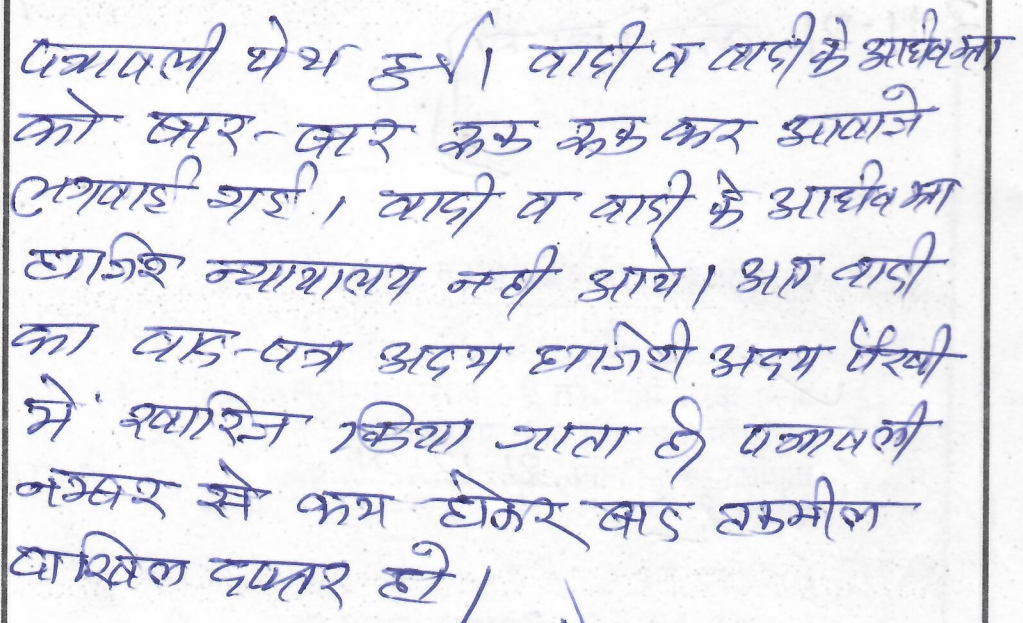 पत्रावली पेश हुई। वादी व वादी के अधिवक्ता
को बार-बार रूक रूक कर आवाजे
लगवाई गई। वादी व वादी के अधिवक्ता
हाजिर न्यायालय नही आये। अतः वादी
का वाद-पत्र अदम हाजिरी अदम पैरवी
मे खारिज किया जाता है। पत्रावली
नम्बर से कम होकर बाद तकमील
दाखिल दफ्तर हो।